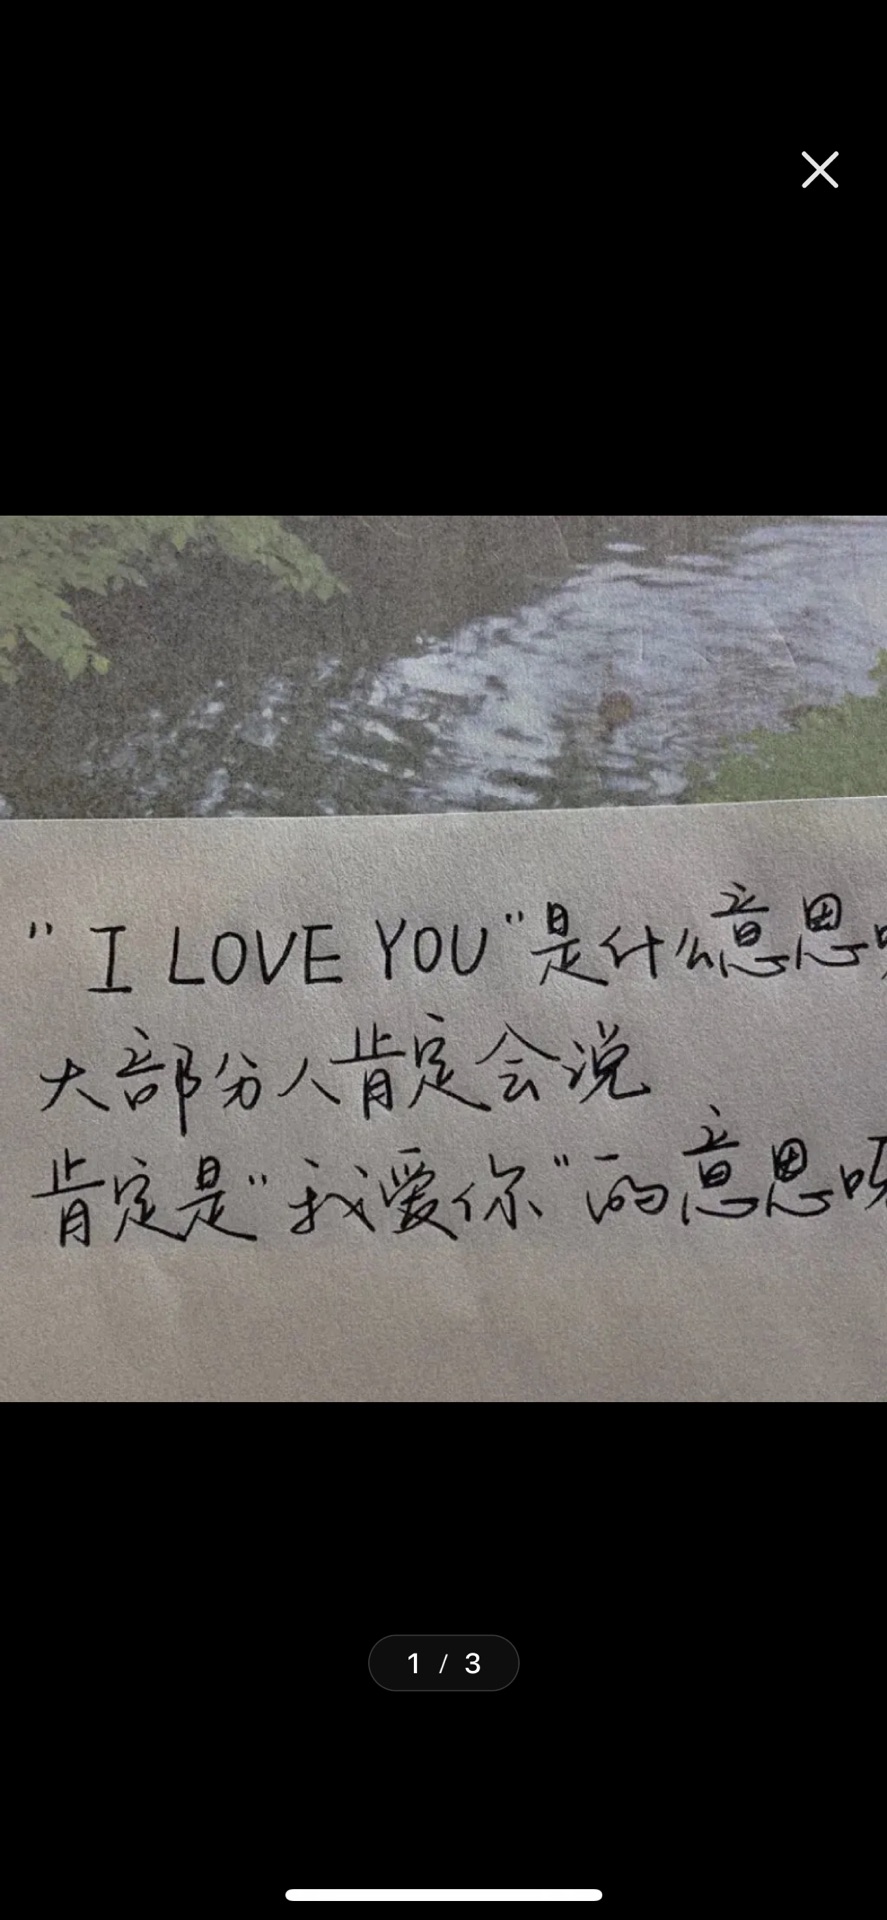 "I LOVE YOU"是什么意思
大部分人肯定会说
肯定是"我爱你"的意思呀
1 / 3